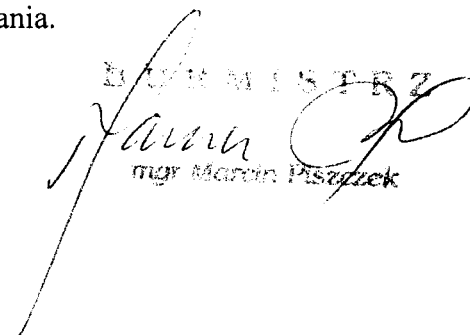 ania.
BURMISTRZ
mgr Marcin Piszczek